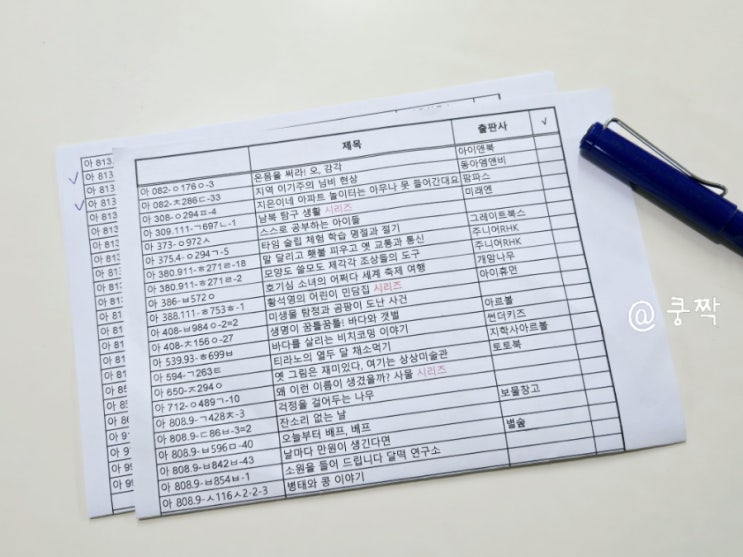 제목 출판사 √
아 082-ㅇ176ㅇ-3 온몸을 써라! 오, 감각 아이앤북
아 082-ㅊ286ㄷ-33 지역 이기주의 님비 현상 동아엠앤비
아 308-ㅇ294ㅍ-4 지은이네 아파트 놀이터는 아무나 못 들어간대요 팜파스
아 309.111-ㄱ697ㄴ-1 남북 탐구 생활 시리즈 미래엔
아 373-ㅇ972ㅅ 스스로 공부하는 아이들
아 375.4-ㅇ294ㄱ-5 타임 슬립 체험 학습 명절과 절기 그레이트북스
아 380.911-ㅎ271ㄹ-18 말 달리고 횃불 피우고 옛 교통과 통신 주니어RHK
아 380.911-ㅎ271ㄹ-2 모양도 쓸모도 제각각 조상들의 도구 주니어RHK
아 386-ㅂ572ㅇ 호기심 소녀의 어쩌다 세계 축제 여행 개암나무
아 388.111-ㅎ753ㅎ-1 황석영의 어린이 민담집 시리즈 아이휴먼
아 408-ㅂ984ㅇ-2=2 미생물 탐정과 곰팡이 도난 사건
아 408-ㅊ156ㅇ-27 생명이 꿈틀꿈틀! 바다와 갯벌 아르볼
아 539.93-ㅎ699ㅂ 바다를 살리는 비치코밍 이야기 썬더키즈
아 594-ㄱ263ㅌ 티라노의 열두 달 채소먹기 지학사아르볼
아 650-ㅈ294ㅇ 옛 그림은 재미있다, 여기는 상상미술관 토토북
아 712-ㅇ489ㄱ-10 왜 이런 이름이 생겼을까? 사물 시리즈
아 808.9-ㄱ428ㅈ-3 걱정을 걸어두는 나무
아 808.9-ㄷ86ㅂ-3=2 잔소리 없는 날 보물창고
아 808.9-ㅂ596ㅁ-40 오늘부터 배프, 베프
아 808.9-ㅂ842ㅂ-43 날마다 만원이 생긴다면 별숲
아 808.9-ㅂ854ㅂ-1 소원을 들어 드립니다 달떡 연구소
아 808.9-ㅅ116ㅅ2-2-3 병태와 콩 이야기
@쿵짝